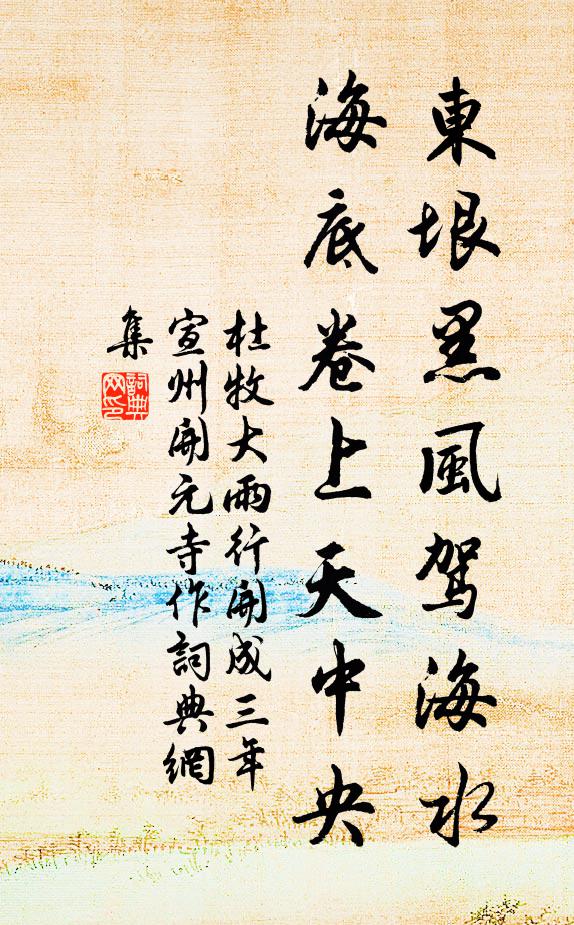 東垠黑風駕海水
海底卷上天中央
杜牧大雨行開成三年
宣州開元寺作詞典網
集
詞典
網印